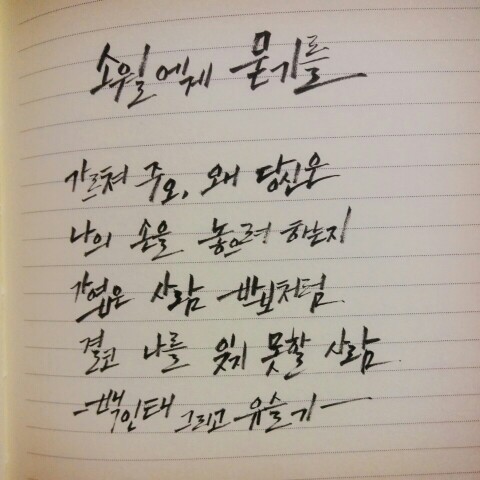 소월에게 묻기를
가르쳐 주오, 왜 당신은
나의 손을 놓으려 하는지
가엾은 사람 바보처럼
결코 나를 잊지 못할 사람
-백인태 그리고 유슬기-